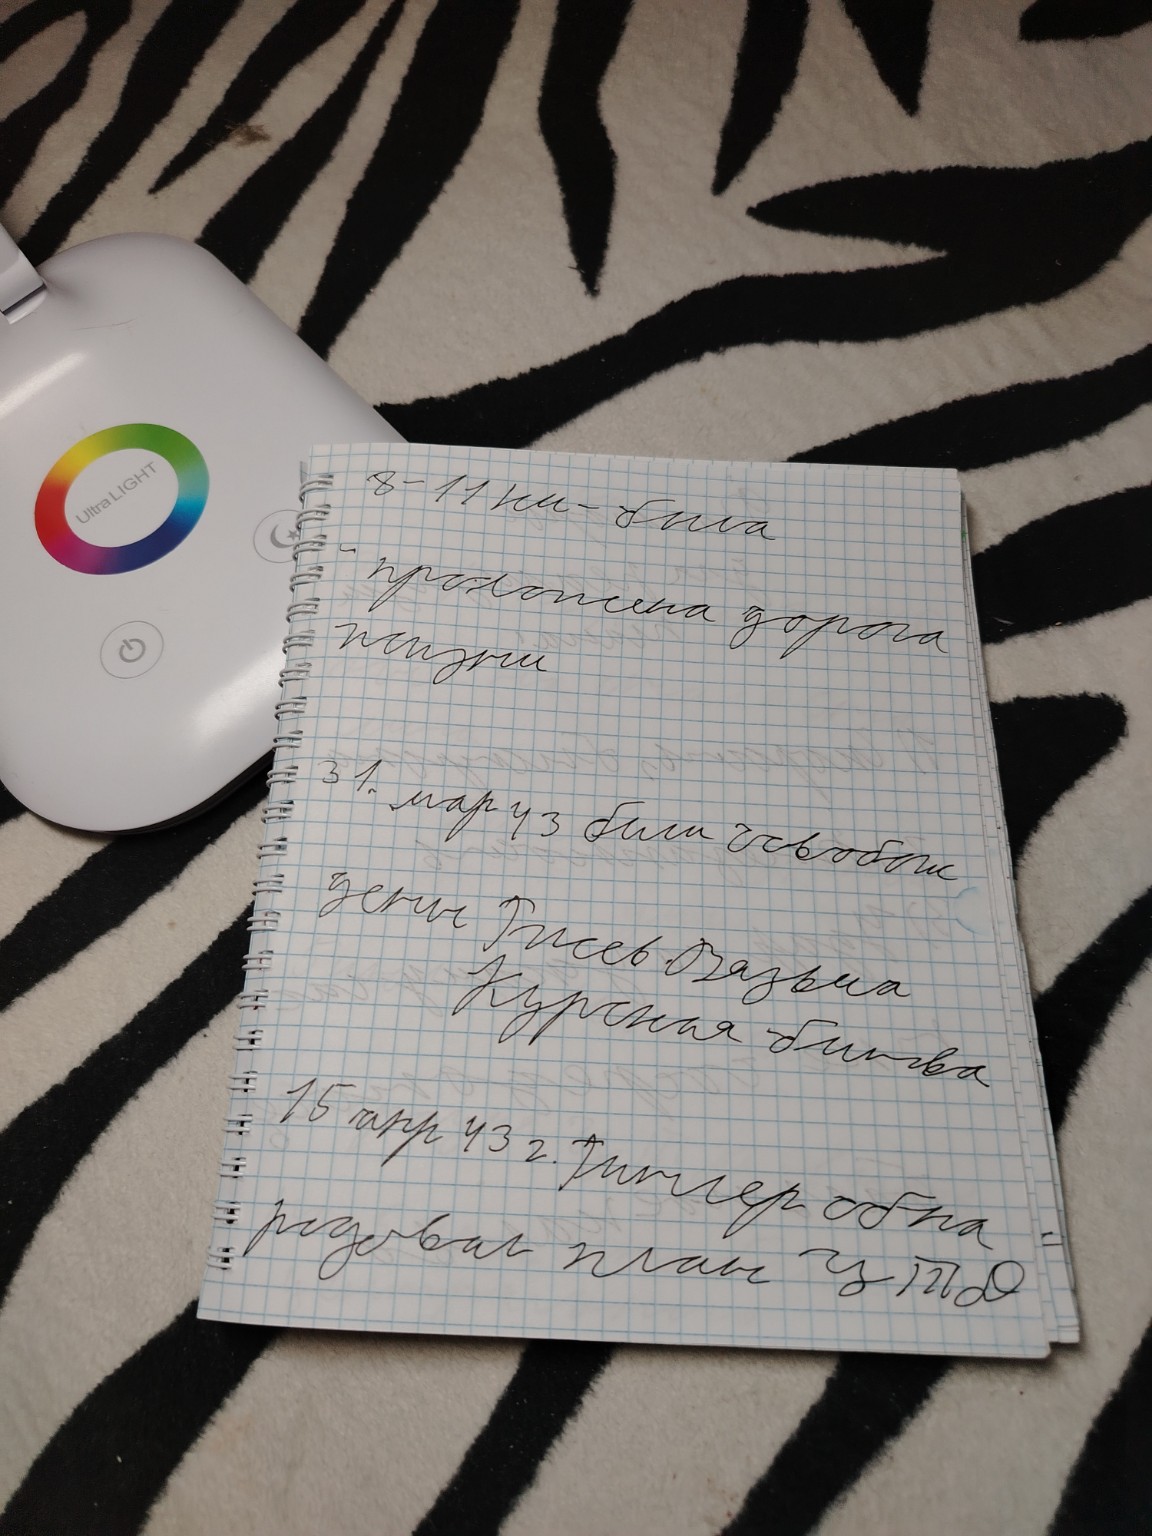 Ultra LIGHT
8-11 км - была
проложена дорога
жизни
31. мар 43 были освобож
дены Гжсев Вязьма
Курская битва
15 апр 43 г. Гитлер обна
родовал план